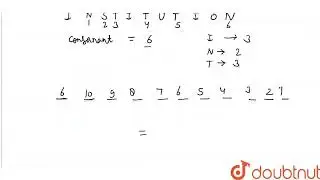 I N S T I T U T I O N
1 2 3 4 5 6
Consonant = 6
I → 3
N → 2
T → 3
6 10 9 8 7 6 5 4 3 2 1
=
doubtnut